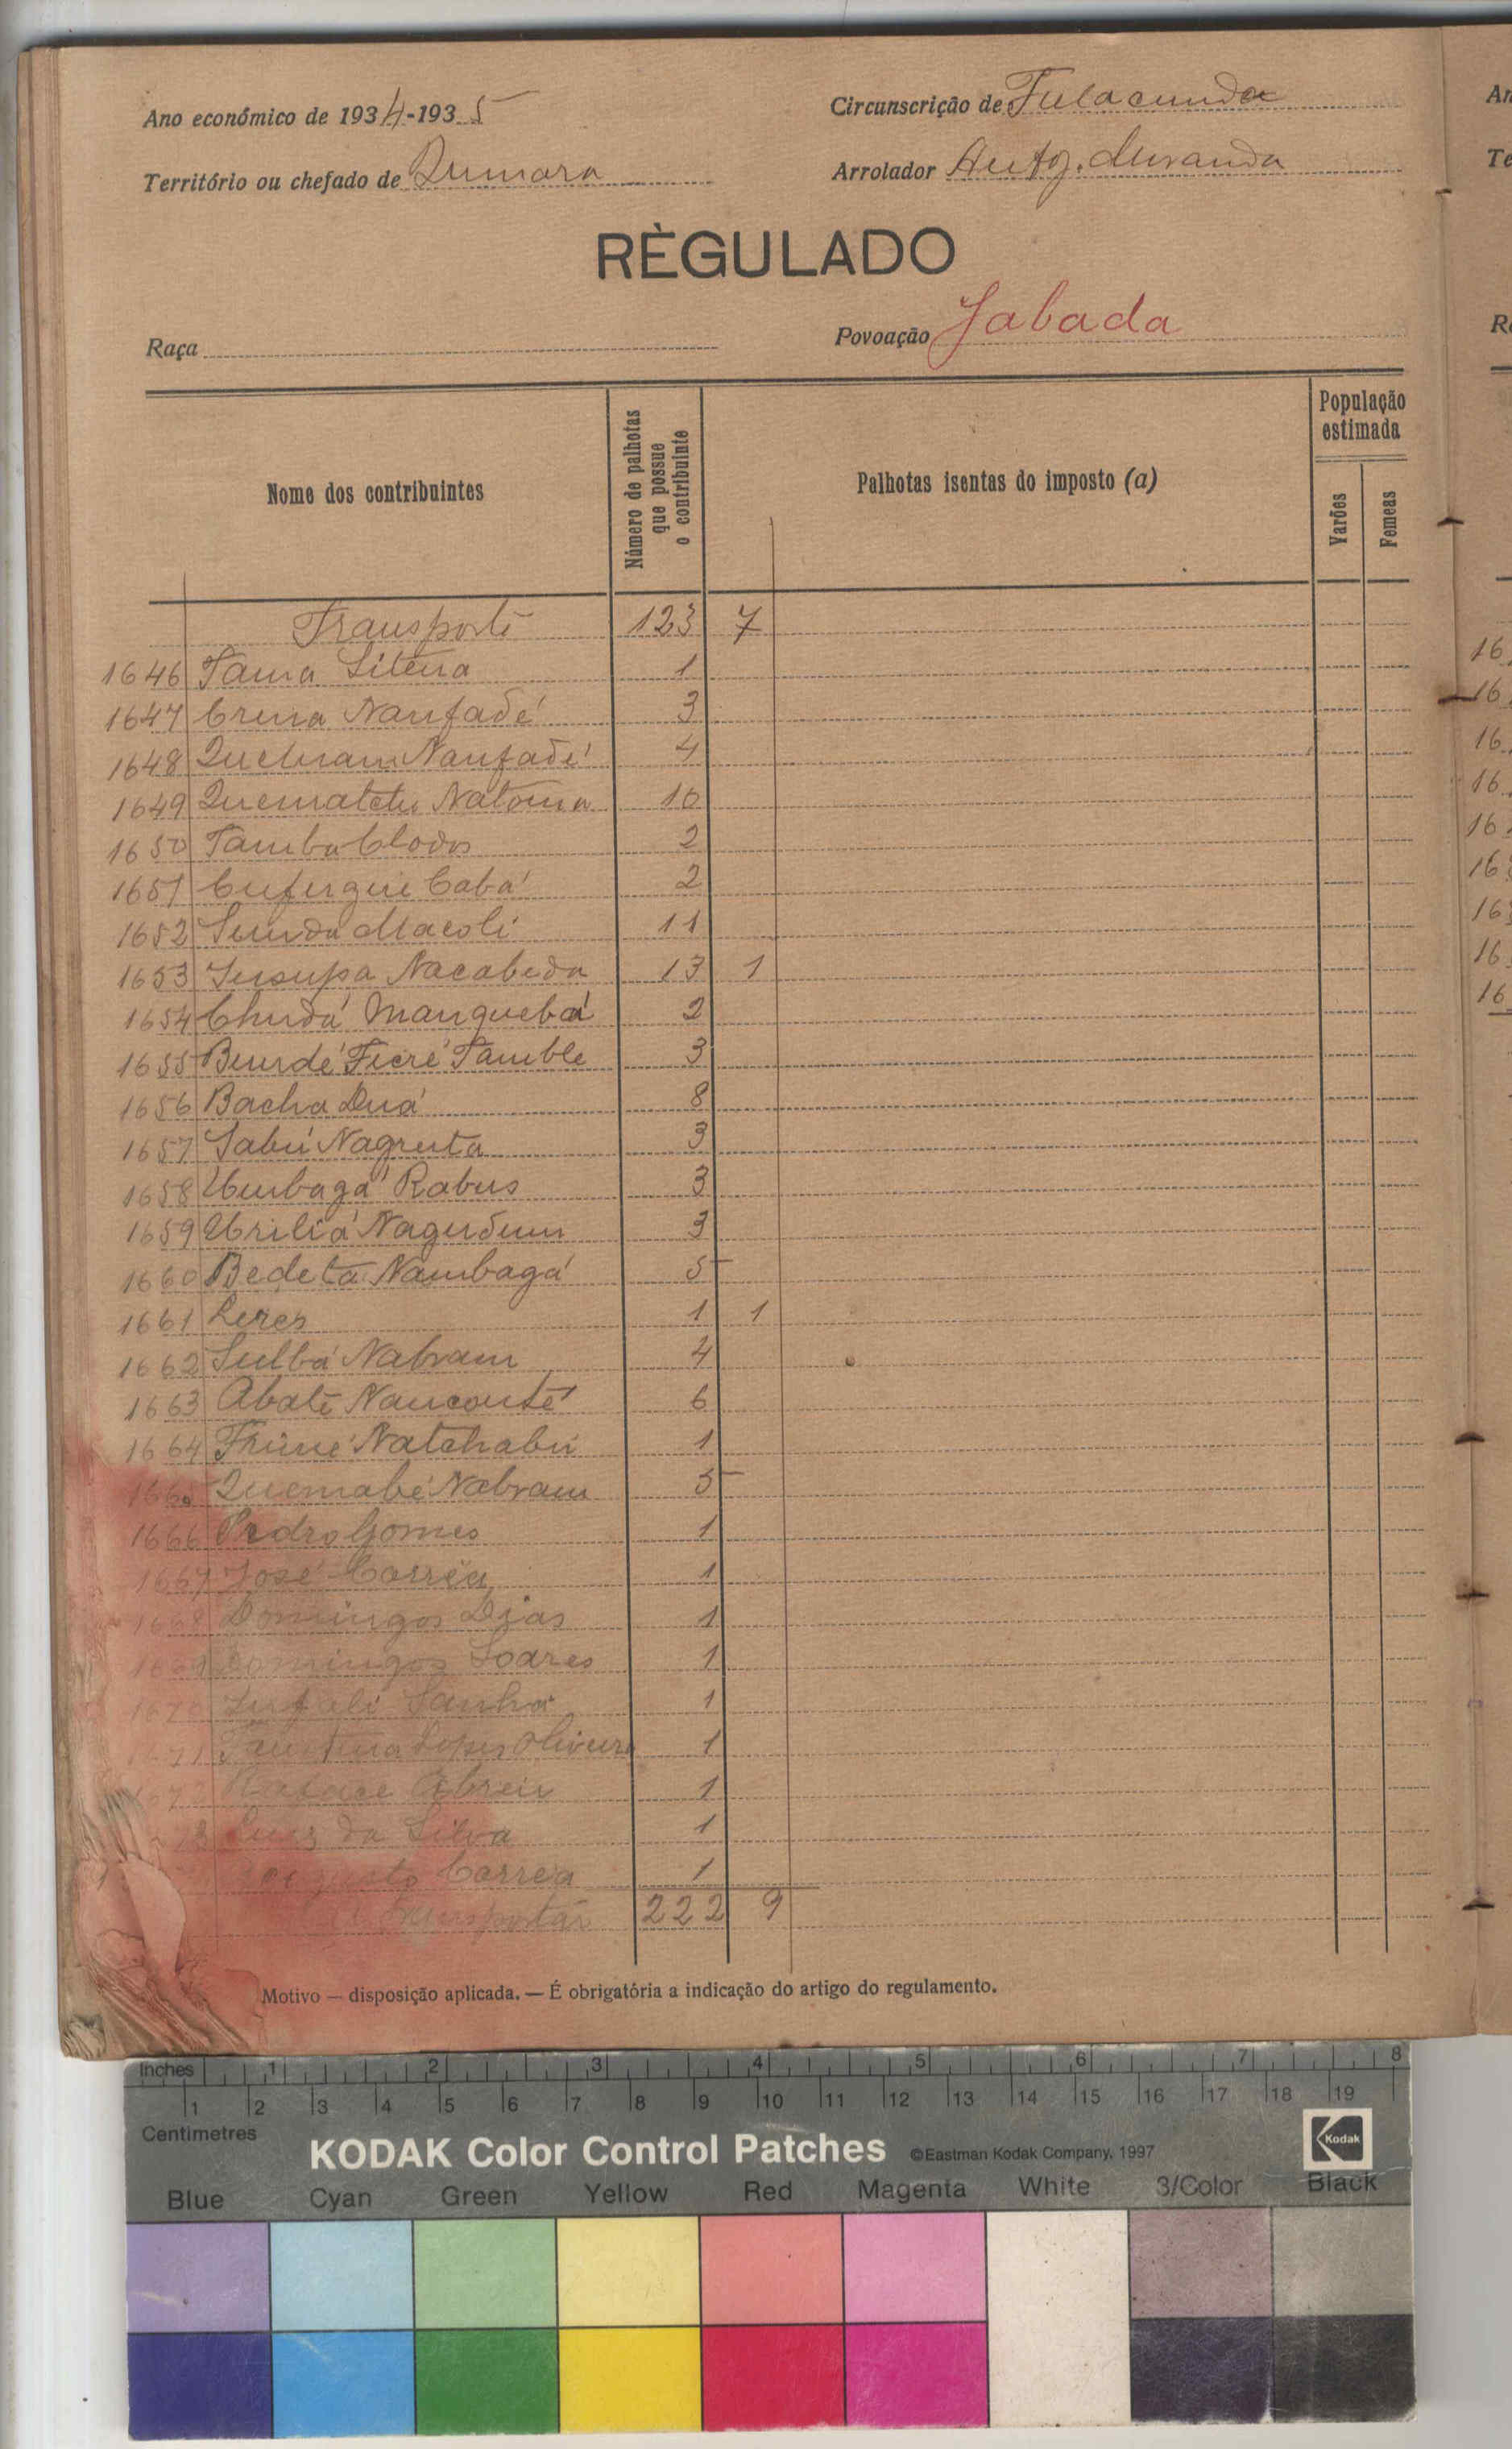 Ano económico de 1934-1935
Circunscrição de Fulacunda
Território ou chefado de Quinara
Arrolador Antg. Miranda
RÈGULADO
Raça
Povoação Jabada
Nome dos contribuintes
Número de palhotas que possue o contribuinte
Palhotas isentas do imposto (a)
População estimada
Varões
Femeas
Transporte 123 7
1646 Tama Litena 1
1647 Crena Nanfadé 3
1648 Nanfadé 4
1649 Quematche Natoma 10
1650 Tamba Clodos 2
1651 Cufergue Cabá 2
1652 Macoli 11
1653 Nacabeda 13 1
1654 Chudá Manguebá 2
1655 Bundé Fieré Tamble 3
1656 Bacha Duá 8
1657 Sabú Nagruta 3
1658 Umbagá Rabus 3
1659 3
1660 Bedeta Nambagá 5
1661 1 1
1662 Sulbá Nabram 4
1663 Abaté Nanconté 6
1664 Natchabú 1
1665 Quemabé Nabram 5
1666 Pedro Gomes 1
1667 José Corrêa 1
1668 Domingos Dias 1
1669 Domingos Soares 1
1670 Sanhá 1
1671 Lopes Oliveira 1
1672 Abreu 1
Luiz da Silva 1
Augusto Correa 1
A transportar 222 9
Motivo — disposição aplicada. — É obrigatória a indicação do artigo do regulamento.
Inches 1 2 3 4 5 6 7 8
1 2 3 4 5 6 7 8 9 10 11 12 13 14 15 16 17 18 19
Centimetres
KODAK Color Control Patches ©Eastman Kodak Company, 1997 Kodak
Blue Cyan Green Yellow Red Magenta White 3/Color Black